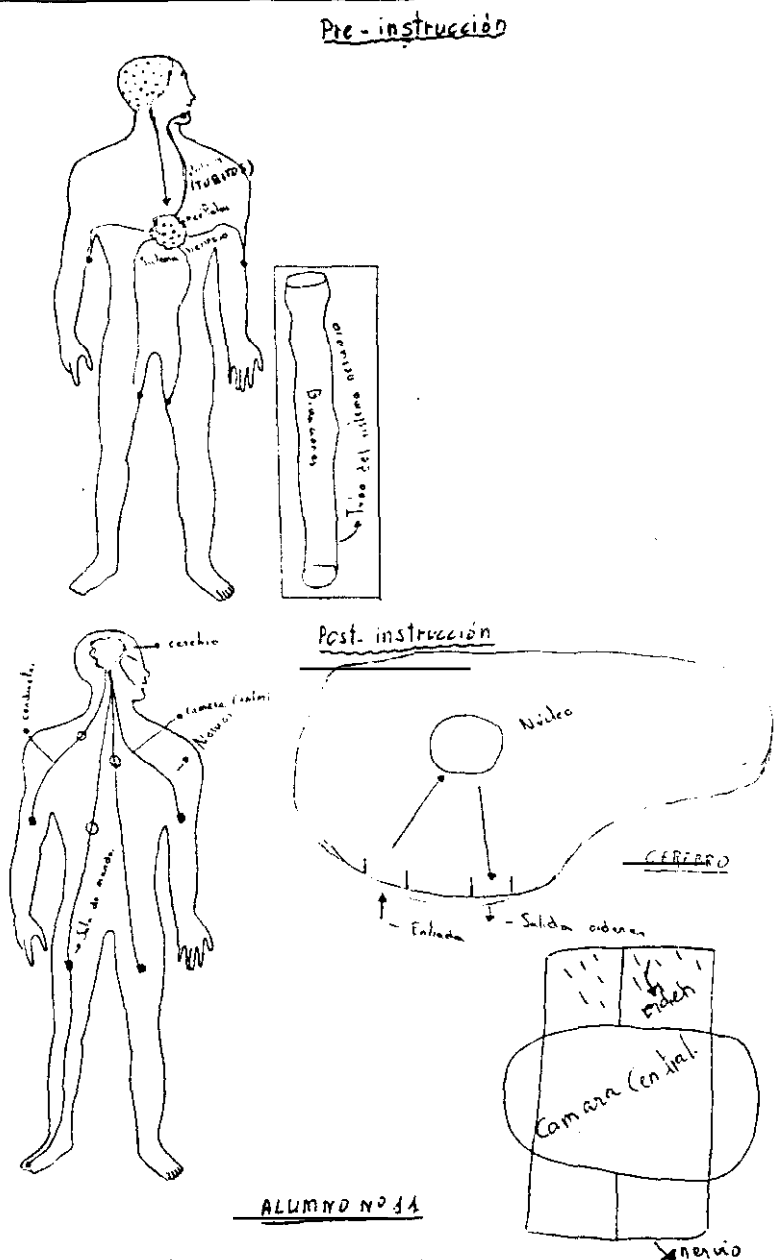 Pre-instrucción
(TUBITOS)
Sistema nervioso
Tubo del sistema nervioso
Post-instrucción
cerebro
conducto
camara central
Nervio
Sala de mando
Núcleo
CEREBRO
- Entrada
- Salida ordenes
orden
Camara Central.
nervio
ALUMNO Nº 11